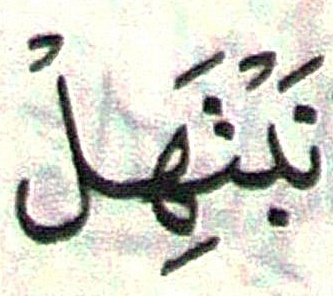 نَبْتَهِلْ